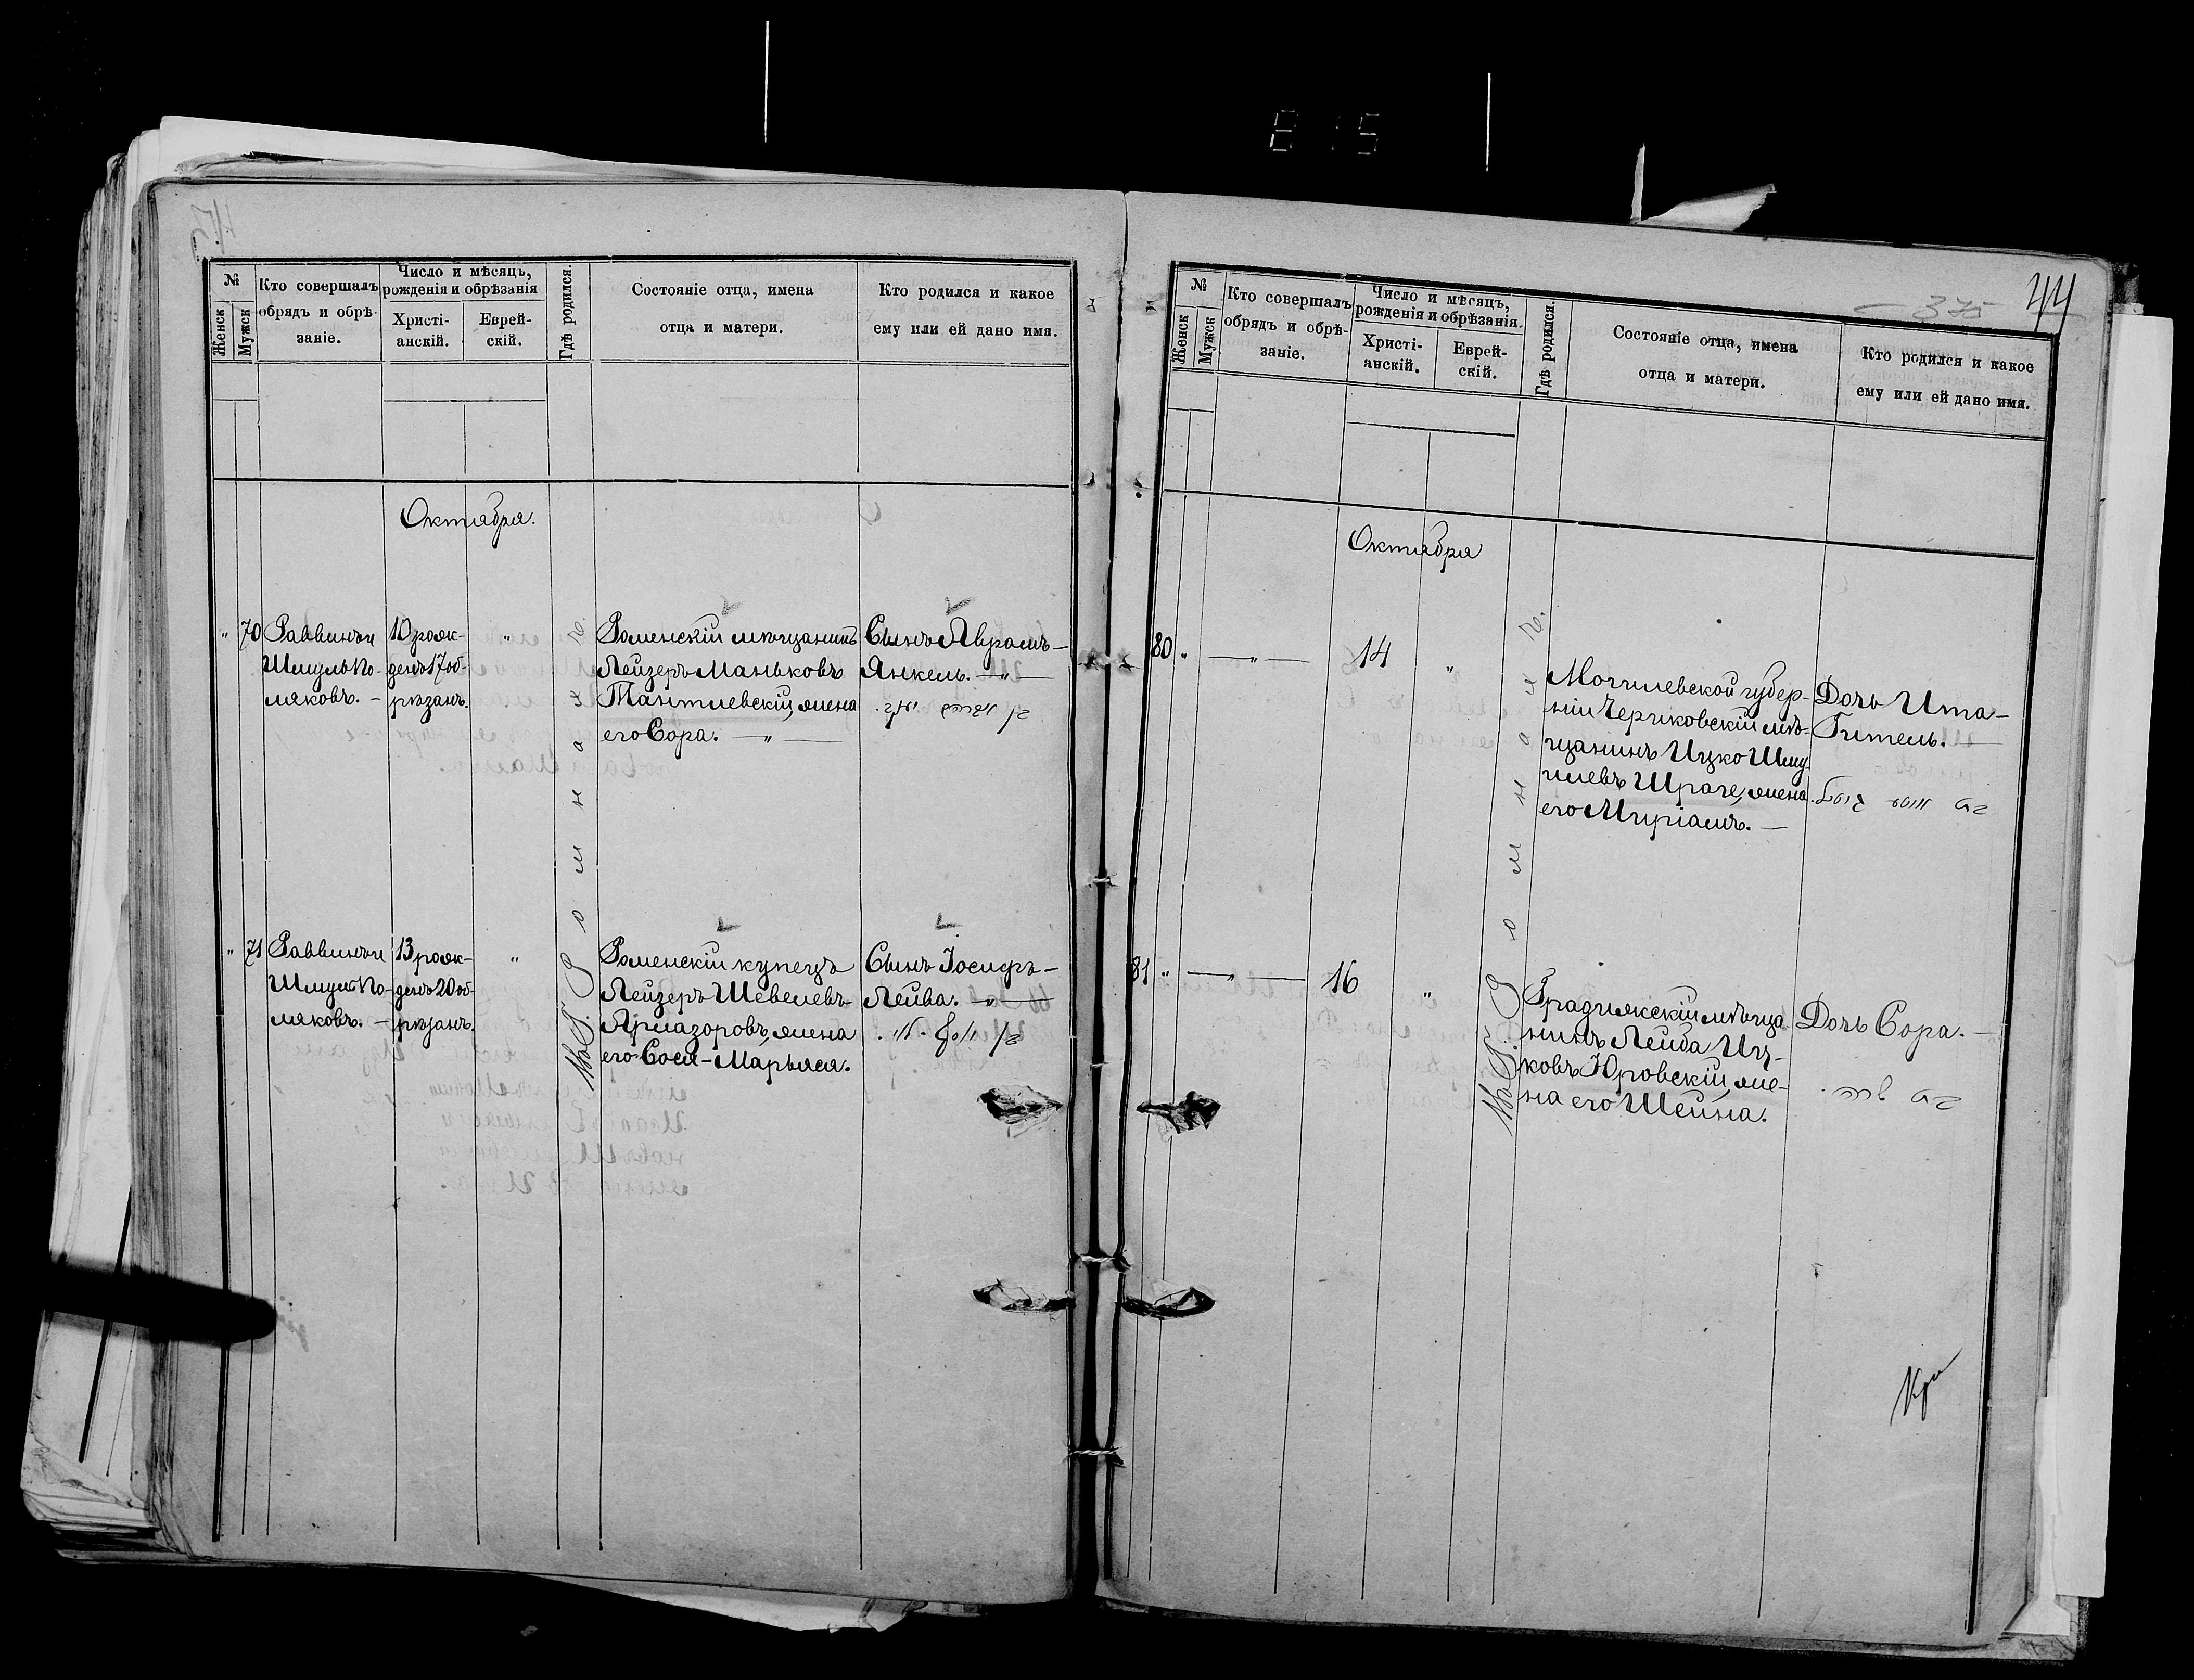 815
№
Женск
Мужск
Кто совершалъ
обрядъ и обрѣ-
заніе.
Число и мѣсяцъ,
рожденія и обрѣзанія
Христі-
анскій.
Еврей-
скій.
Гдѣ родился.
Состояніе отца, имена
отца и матери.
Кто родился и какое
ему или ей дано имя.
Октября.
" 70
Раввинъ и
Шмуль По-
ляковъ. –
10 рож-
денъ 17 об-
рѣзанъ.
"
Роменскій мѣщанинъ
Лейзеръ Маньковъ
Тантлевскій, жена
его Сора. — " —
Сынъ Аврамъ-
Янкель. — " —
" 71
Раввинъ и
Шмуль По-
ляковъ. –
13 рож-
денъ 20 об-
рѣзанъ.
"
Въ г. Ромнахъ.
Роменскій купецъ
Лейзеръ Шевелевъ
Арлазоровъ, жена
его Сося-Марьяся.
Сынъ Іосифъ-
Лейба. — " —
375
44
№
Женск
Мужск
Кто совершалъ
обрядъ и обрѣ-
заніе.
Число и мѣсяцъ,
рожденія и обрѣзанія.
Христі-
анскій.
Еврей-
скій.
Гдѣ родился.
Состояніе отца, имена
отца и матери.
Кто родился и какое
ему или ей дано имя.
Октября
80 " — " — 14 "
Могилевской губер-
ніи Чериковскій мѣ-
щанинъ Ицко Шму-
илевъ Шраге, жена
его Миріамъ. —
Дочь Ита-
Гитель. —
81 " — " — 16 "
Въ г. Ромнахъ.
Градижскій мѣща
нинъ Лейба Иц-
ковъ Юровскій, же-
на его Шейна.
Дочь Сора. —